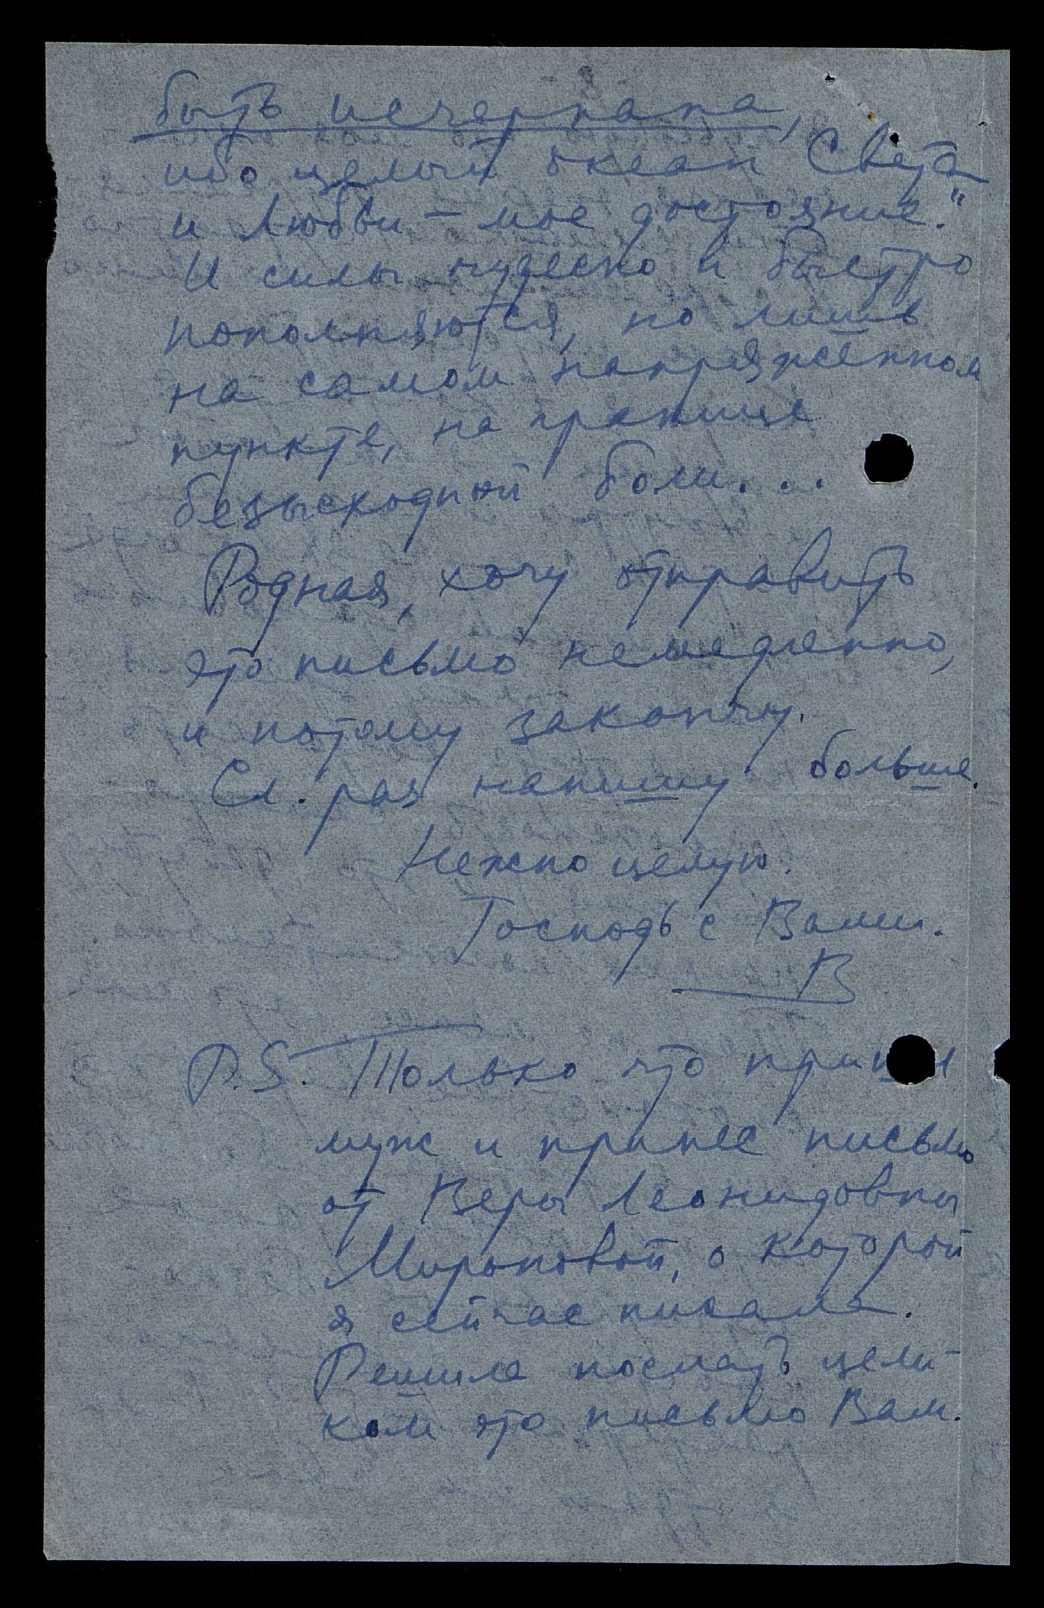 быть исчерпана,
ибо целый океан Света
и Любви – мое достояние."
И силы чудесно и быстро
пополняются, но лишь
на самом напряженном
пункте, на границе
безысходной боли...
Родная, хочу отправить
это письмо немедленно,
и потому закончу.
Сл. раз напишу больше.
Нежно целую.
Господь с Вами.
В
P.S. Только что пришел
муж и принес письмо
от Веры Леонидовны
Мироновой, о которой
я сейчас писала.
Решила послать цели-
ком это письмо Вам.